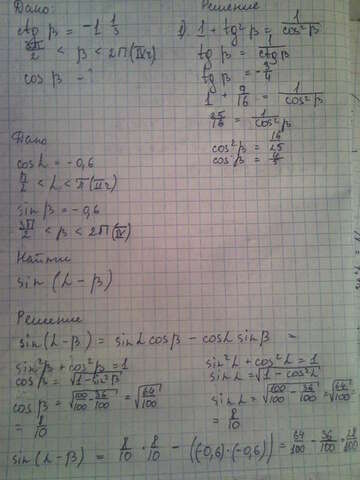 Дано:
ctg β = -1 1/3
3π/2 < β < 2π (IV ч)
cos β - ?
Решение
1) 1 + tg²β = 1/cos²β
tg β = 1/ctg β
tg β = -3/4
1 + 9/16 = 1/cos²β
25/16 = 1/cos²β
cos²β = 16/25
cos β = 4/5
Дано
cos L = -0,6
π/2 < L < π (II ч)
sin β = -0,6
3π/2 < β < 2π (IV)
Найти
sin (L - β)
Решение
sin (L - β) = sin L cos β - cos L sin β =
sin²β + cos²β = 1
cos β = √1 - sin²β
cos β = √100/100 - 36/100 = √64/100
= 8/10
sin²L + cos²L = 1
sin L = √1 - cos²L
sin L = √100/100 - 36/100 = √64/100
= 8/10
sin (L - β) = 8/10 · 8/10 - ((-0,6) · (-0,6)) = 64/100 - 36/100 = 28/100